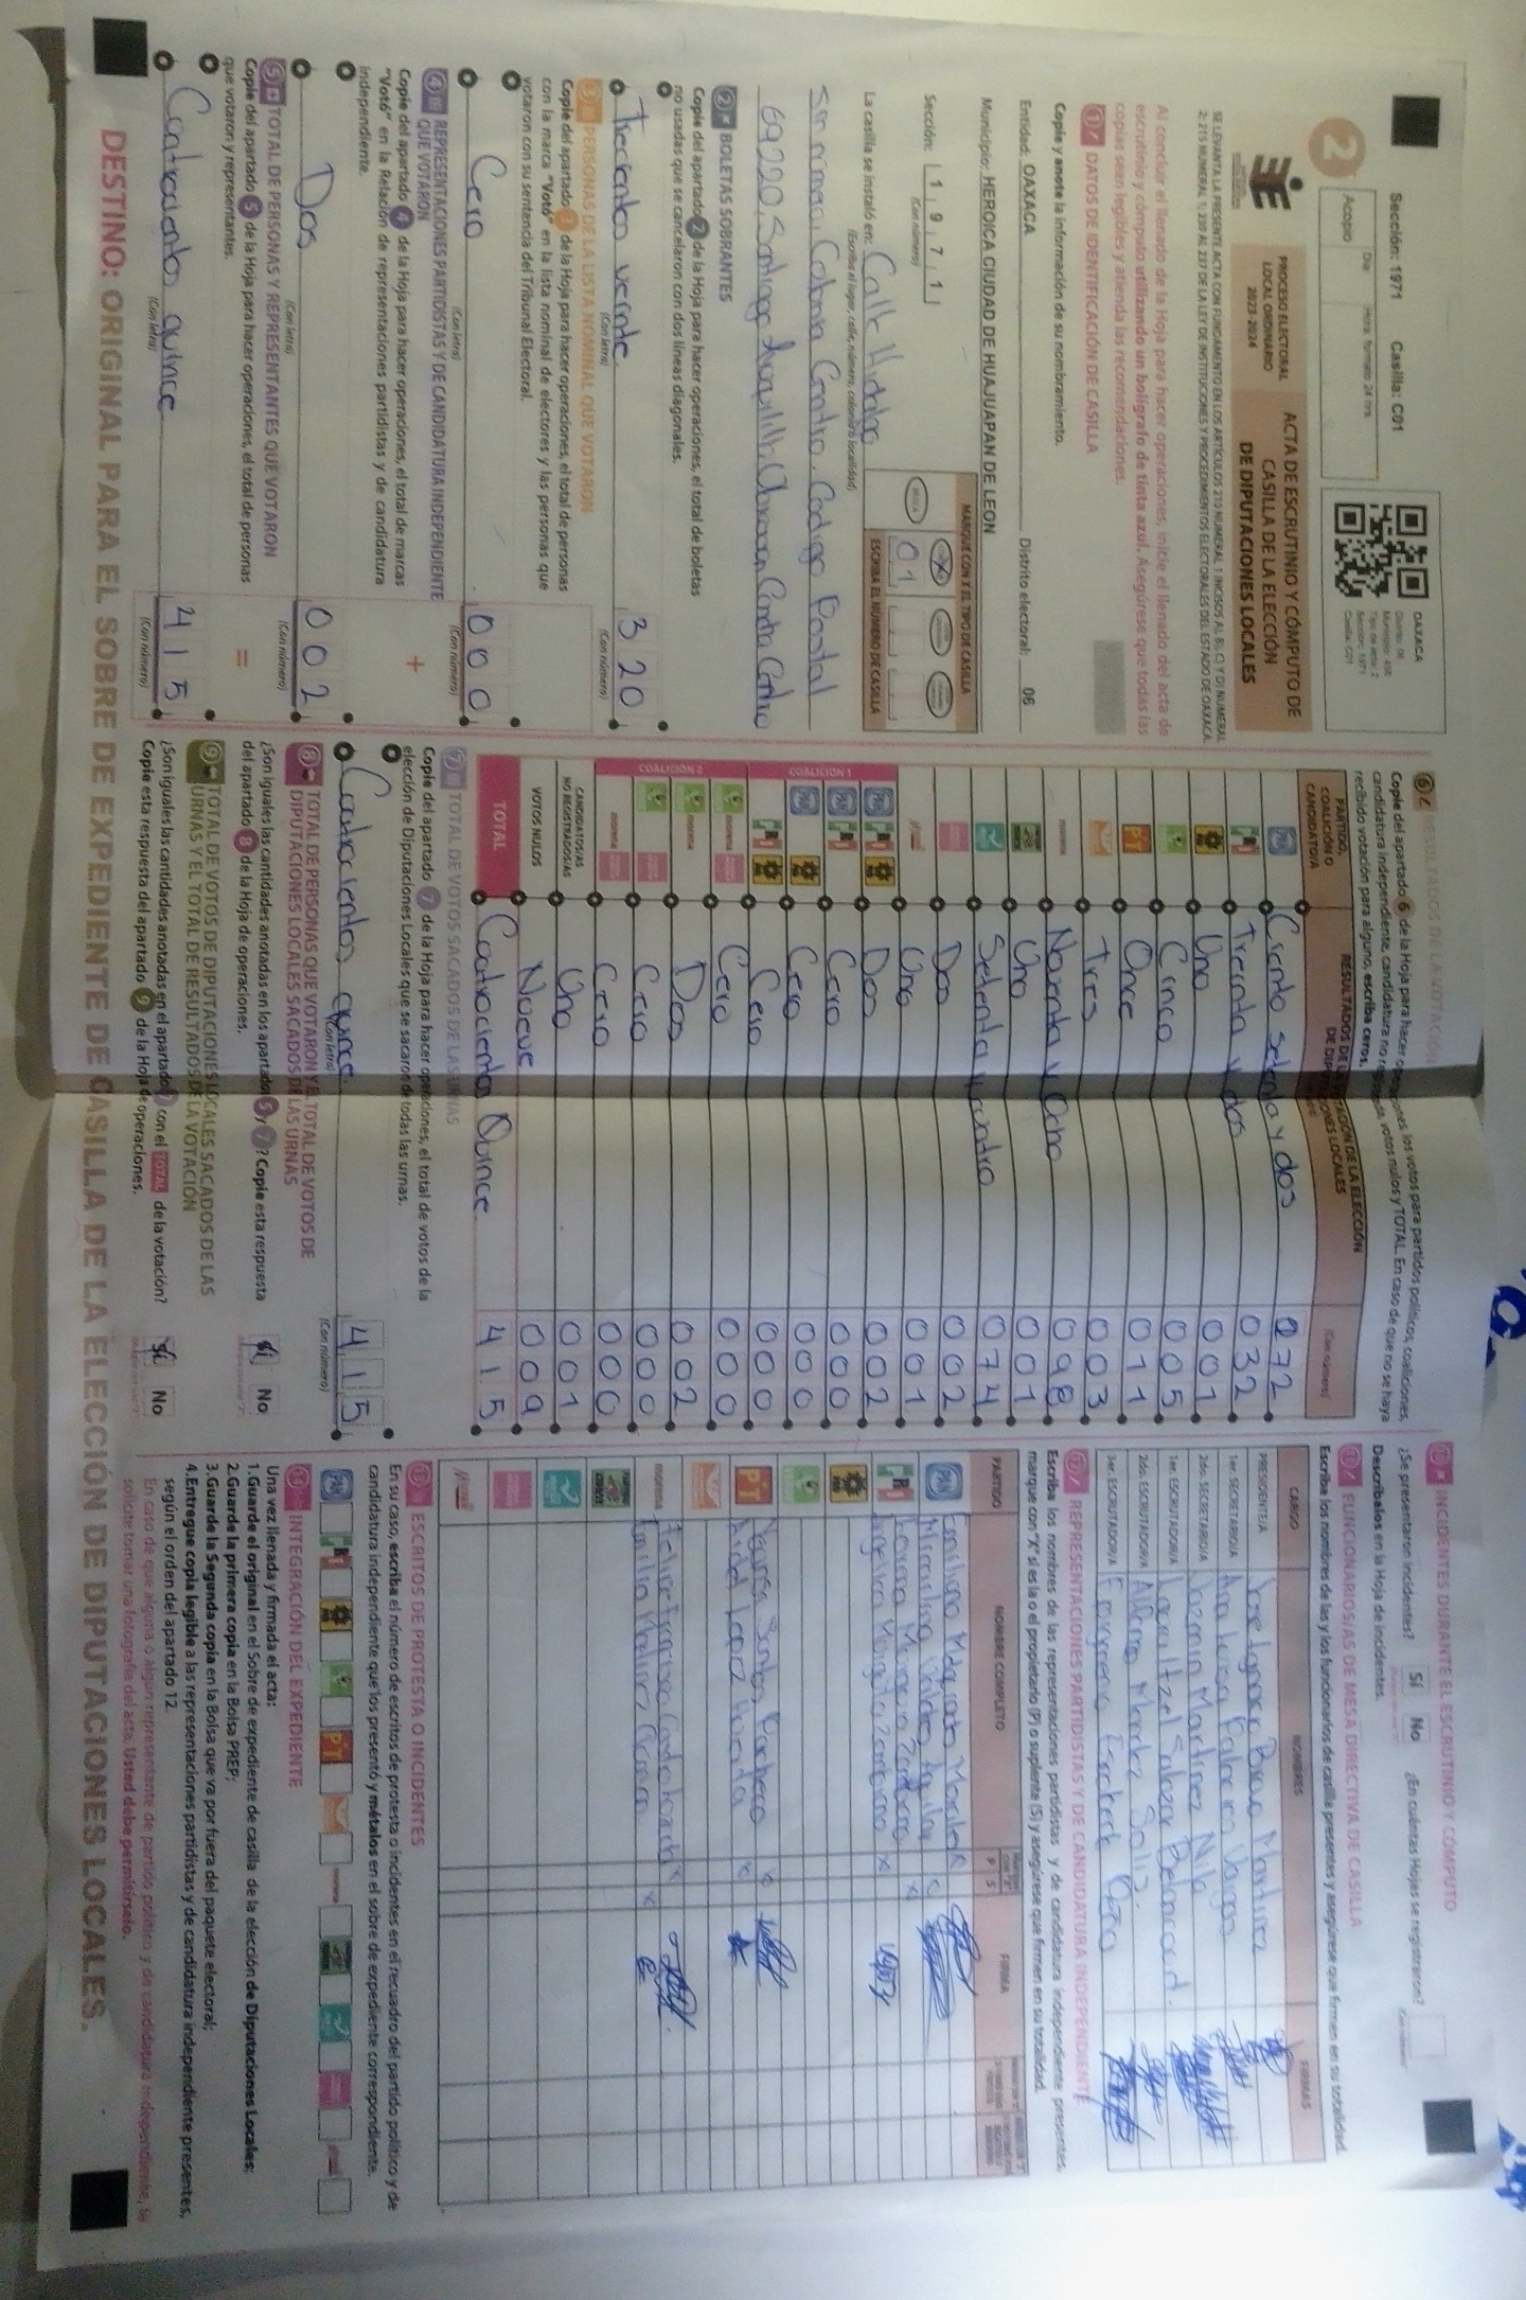 Sección: 1971 Casilla: C01
2
Acopio
Día Hora formato 24 hrs
OAXACA
Distrito: 06
Sección: 1971
Casilla: C01
PROCESO ELECTORAL
LOCAL ORDINARIO
2023-2024
ACTA DE ESCRUTINIO Y CÓMPUTO DE
CASILLA DE LA ELECCIÓN
DE DIPUTACIONES LOCALES
Al concluir el llenado de la Hoja para hacer operaciones, inicie el llenado del acta de
escrutinio y cómputo utilizando un bolígrafo de tinta azul. Asegúrese que todas las
copias sean legibles y atienda las recomendaciones.
1 DATOS DE IDENTIFICACIÓN DE CASILLA
Copie y anote la información de su nombramiento.
Entidad: OAXACA Distrito electoral: 06
Municipio: HEROICA CIUDAD DE HUAJUAPAN DE LEON
Sección: 1 9 7 1
(Con número)
MARQUE CON X EL TIPO DE CASILLA
ESCRIBA EL NÚMERO DE CASILLA
01
La casilla se instaló en: Calle Hidalgo
(Escriba el lugar, calle, número, colonia o localidad)
sin número, Colonia Centro, Codigo Postal
69220, Santiago
2 BOLETAS SOBRANTES
Copie del apartado 2 de la Hoja para hacer operaciones, el total de boletas
no usadas que se cancelaron con dos líneas diagonales.
Trecientos veinte 320
(Con letra) (Con número)
3 PERSONAS DE LA LISTA NOMINAL QUE VOTARON
Copie del apartado 3 de la Hoja para hacer operaciones, el total de personas
con la marca "Votó" en la lista nominal de electores y las personas que
votaron con su sentencia del Tribunal Electoral.
Cero 000
(Con letra) (Con número)
4 REPRESENTACIONES PARTIDISTAS Y DE CANDIDATURA INDEPENDIENTE
QUE VOTARON
Copie del apartado 4 de la Hoja para hacer operaciones, el total de marcas
"Votó" en la Relación de representaciones partidistas y de candidatura
independiente.
+
Dos 002
(Con letra) (Con número)
5 TOTAL DE PERSONAS Y REPRESENTANTES QUE VOTARON
Copie del apartado 5 de la Hoja para hacer operaciones, el total de personas
que votaron y representantes.
=
Catrocientos quince 415
(Con letra) (Con número)
6 RESULTADOS DE LA VOTACIÓN
candidatura independiente, candidatura no registrada, votos nulos y TOTAL. En caso de que no se haya
recibido votación para alguno, escriba ceros.
PARTIDO,
COALICIÓN O
CANDIDATO/A
RESULTADOS DE LA VOTACIÓN DE LA ELECCIÓN
DE DIPUTACIONES LOCALES
(Con número)
PAN Ciento setenta y dos 072
PRI Treinta y dos 032
PRD Uno 001
Cinco 005
PT Once 011
Tres 003
morena Noventa y Ocho 098
Uno 001
Setenta y cuatro 074
Dos 002
Uno 001
COALICIÓN 1
PAN PRI PRD Dos 002
PAN PRI Cero 000
PAN PRD Cero 000
PRI PRD Cero 000
COALICIÓN 2
morena Cero 000
morena Dos 002
Cero 000
morena Cero 000
CANDIDATOS/AS
NO REGISTRADOS/AS Uno 001
VOTOS NULOS Nueve 009
TOTAL Catrocientos Quince 415
7 TOTAL DE VOTOS SACADOS DE LAS URNAS
Copie del apartado 7 de la Hoja para hacer operaciones, el total de votos de la
elección de Diputaciones Locales que se sacaron de todas las urnas.
Catrocientos quince 415
(Con letra) (Con número)
8 TOTAL DE PERSONAS QUE VOTARON Y EL TOTAL DE VOTOS DE
DIPUTACIONES LOCALES SACADOS DE LAS URNAS
¿Son iguales las cantidades anotadas en los apartados 5 y 7? Copie esta respuesta
del apartado 8 de la Hoja de operaciones.
Sí No
9 TOTAL DE VOTOS DE DIPUTACIONES LOCALES SACADOS DE LAS
URNAS Y EL TOTAL DE RESULTADOS DE LA VOTACIÓN
¿Son iguales las cantidades anotadas en el apartado 7 con el TOTAL de la votación?
Copie esta respuesta del apartado 9 de la Hoja de operaciones.
Sí No
INCIDENTES DURANTE EL ESCRUTINIO Y CÓMPUTO
¿Se presentaron incidentes? Sí No ¿En cuántas Hojas se registraron?
Descríbalos en la Hoja de incidentes.
FUNCIONARIOS/AS DE MESA DIRECTIVA DE CASILLA
Escriba los nombres de las y los funcionarios de casilla presentes y asegúrese que firmen en su totalidad.
CARGO NOMBRES FIRMAS
PRESIDENTE/A Jose Ignacio Bravo Martinez
1er. SECRETARIO/A Ana Laura Palacios Vargas
2do. SECRETARIO/A Jazmin Martinez Nila
1er. ESCRUTADOR/A
2do. ESCRUTADOR/A Mendez Solis
3er. ESCRUTADOR/A
REPRESENTACIONES PARTIDISTAS Y DE CANDIDATURA INDEPENDIENTE
Escriba los nombres de las representaciones partidistas y de candidatura independiente presentes,
marque con "X" si es la o el propietario (P) o suplente (S) y asegúrese que firmen en su totalidad.
PARTIDO NOMBRE COMPLETO P S FIRMA
PAN
PRI
PRD
PT
morena
ESCRITOS DE PROTESTA O INCIDENTES
En su caso, escriba el número de escritos de protesta o incidentes en el recuadro del partido político y de
candidatura independiente que los presentó y métalos en el sobre de expediente correspondiente.
PAN PRI PRD PT morena
INTEGRACIÓN DEL EXPEDIENTE
Una vez llenada y firmada el acta:
1.Guarde el original en el Sobre de expediente de casilla de la elección de Diputaciones Locales;
2.Guarde la primera copia en la Bolsa PREP;
3.Guarde la Segunda copia en la Bolsa que va por fuera del paquete electoral;
4.Entregue copia legible a las representaciones partidistas y de candidatura independiente presentes,
según el orden del apartado 12.
En caso de que alguna o algún representante de partido político y de candidatura independiente, le
solicite tomar una fotografía del acta. Usted debe permitírselo.
DESTINO: ORIGINAL PARA EL SOBRE DE EXPEDIENTE DE CASILLA DE LA ELECCIÓN DE DIPUTACIONES LOCALES.